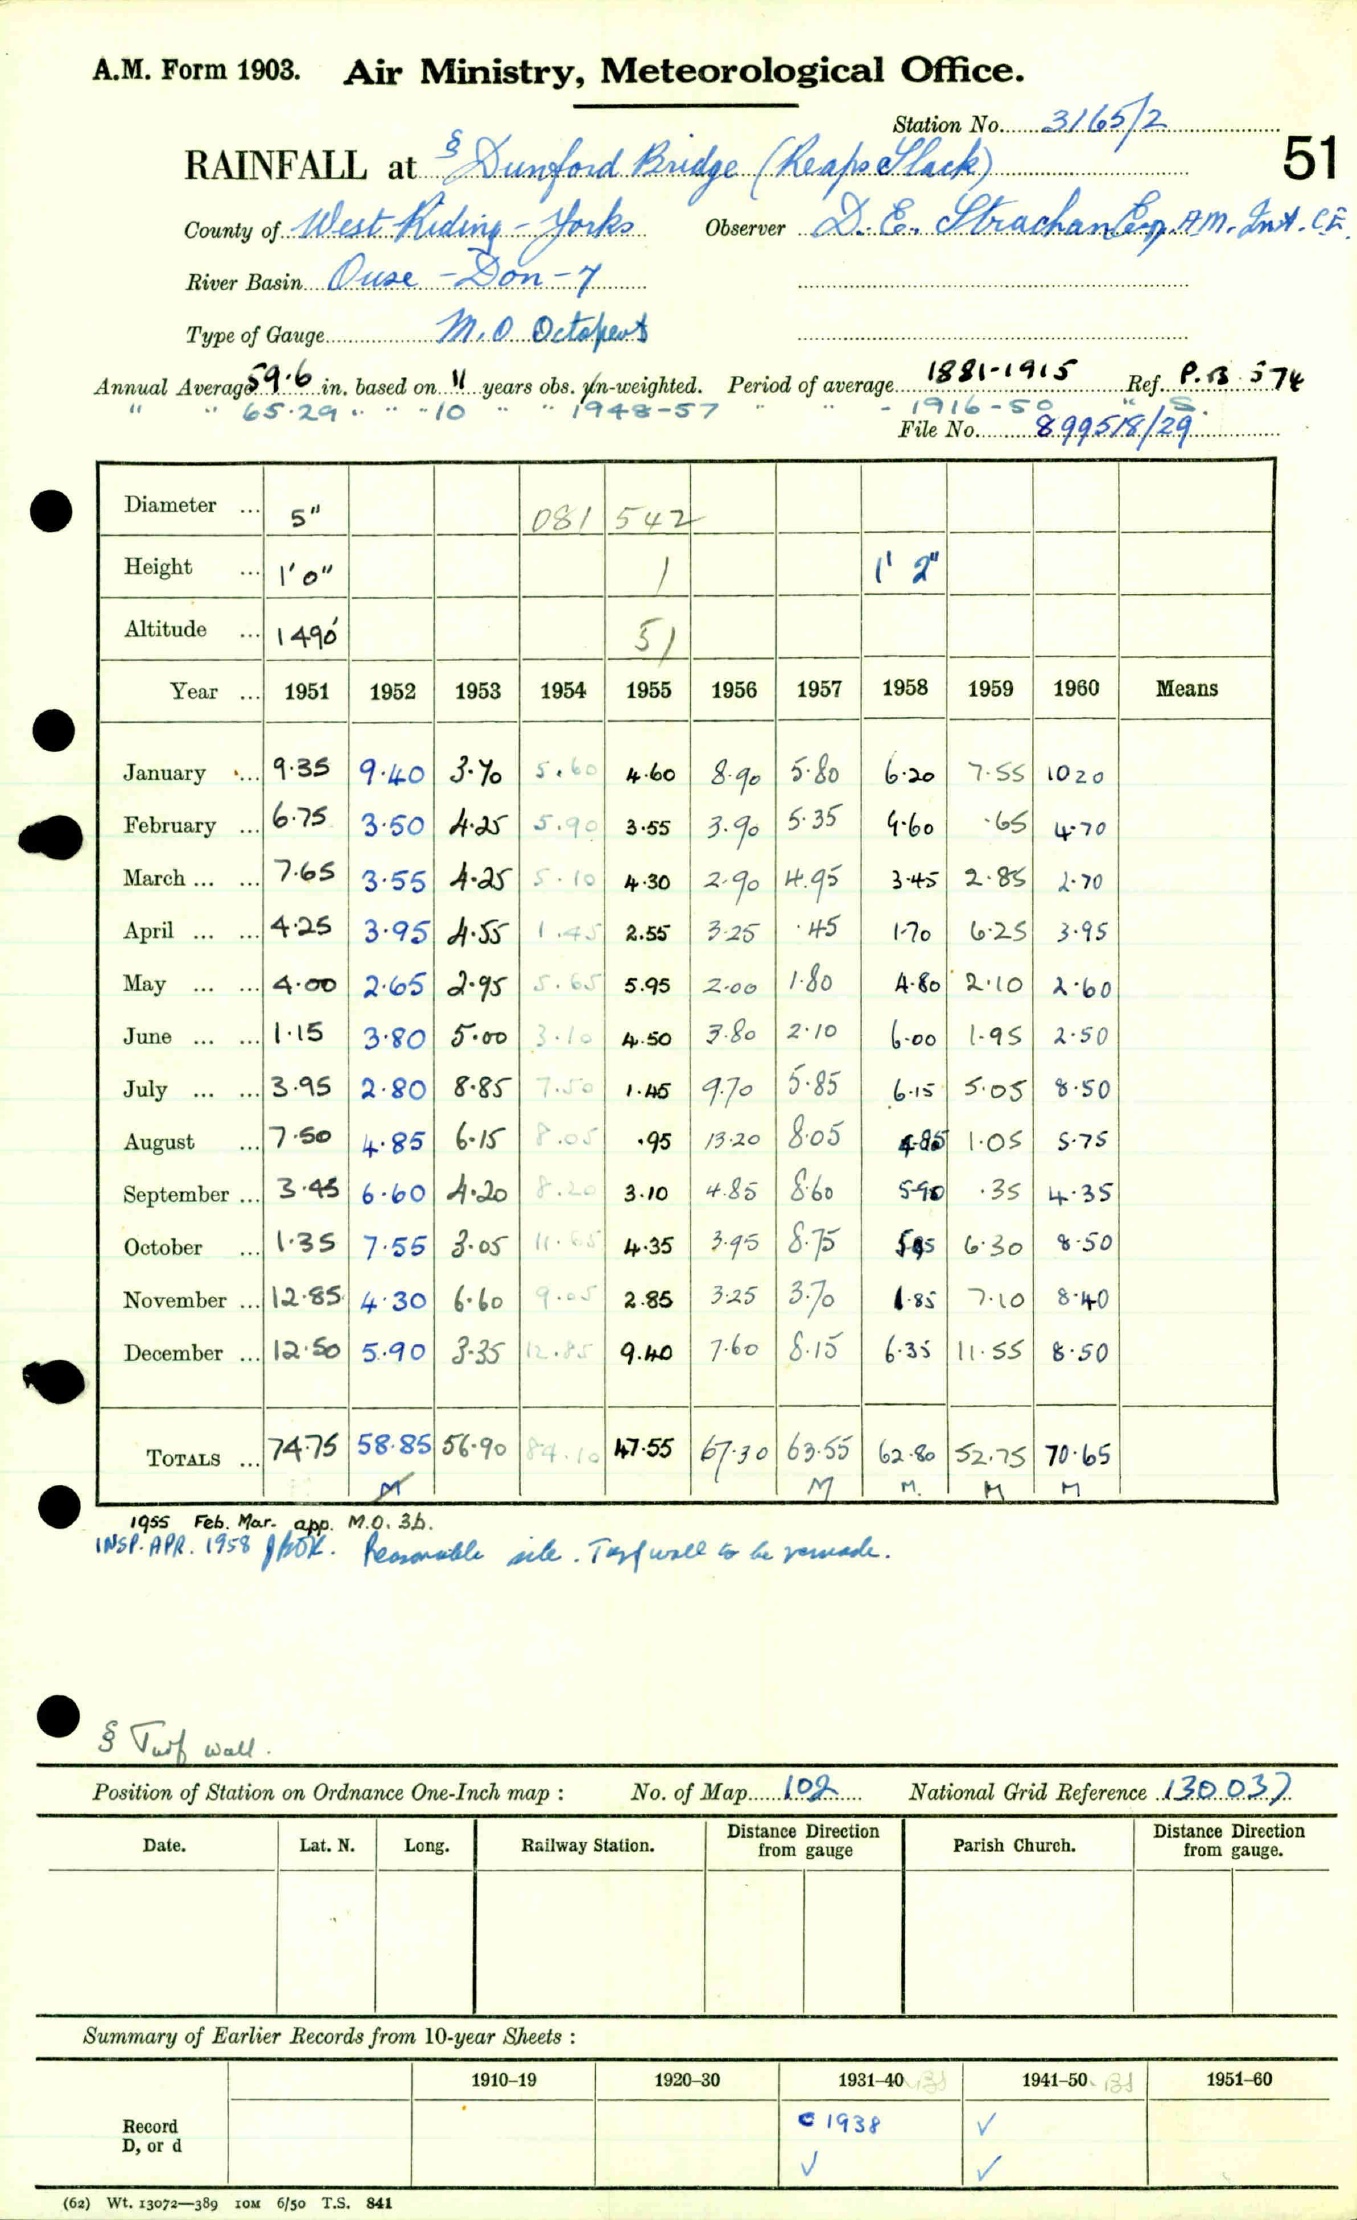 A.M. Form 1903. Air Ministry, Meteorological Office.
Station No. 3165/2
51
RAINFALL at § Dunford Bridge (Reaps Slack)
County of West Riding - Yorks Observer D. E. Strachan Esq. A.M. Inst. C.E.
River Basin Ouse - Don - 7
Type of Gauge M.O Octapent
Annual Average 59.6 in. based on 11 years obs. un-weighted. Period of average 1881-1915 Ref. P.B 574
" " 65.29 " " " 10 " " 1948-57 " " - 1916-50 " S.
File No. 899518/29
Diameter ... 5" 081 542
Height ... 1' 0" 1 1' 2"
Altitude ... 1490' 51
Year ... 1951 1952 1953 1954 1955 1956 1957 1958 1959 1960 Means
January ... 9.35 9.40 3.70 5.60 4.60 8.90 5.80 6.20 7.55 10 20
February ... 6.75 3.50 4.25 5.90 3.55 3.90 5.35 9.60 .65 4.70
March ... ... 7.65 3.55 4.25 5.10 4.30 2.90 4.95 3.45 2.85 2.70
April ... ... 4.25 3.95 4.55 1.45 2.55 3.25 .45 1.70 6.25 3.95
May ... ... 4.00 2.65 2.95 5.65 5.95 2.00 1.80 4.80 2.10 2.60
June ... ... 1.15 3.80 5.00 3.10 4.50 3.80 2.10 6.00 1.95 2.50
July ... ... 3.95 2.80 8.85 7.50 1.45 9.70 5.85 6.15 5.05 8.50
August ... 7.50 4.85 6.15 8.05 .95 13.20 8.05 4.85 1.05 5.75
September ... 3.45 6.60 4.20 8.20 3.10 4.85 8.60 5.90 .35 4.35
October ... 1.35 7.55 3.05 11.65 4.35 3.95 8.75 5.95 6.30 8.50
November ... 12.85 4.30 6.60 9.05 2.85 3.25 3.70 1.85 7.10 8.40
December ... 12.50 5.90 3.35 12.85 9.40 7.60 8.15 6.35 11.55 8.50
TOTALS ... 74.75 58.85 56.90 84.10 47.55 67.30 63.55 62.80 52.75 70.65
M M M. M M
1955 Feb. Mar. app. M.O. 3b.
INSP. APR. 1958 Reasonable site. Turf wall to be remade.
§ Turf wall.
Position of Station on Ordnance One-Inch map : No. of Map 102 National Grid Reference 130037
Date. Lat. N. Long. Railway Station. Distance Direction from gauge Parish Church. Distance Direction from gauge.
Summary of Earlier Records from 10-year Sheets :
1910–19 1920–30 1931–40 BS 1941–50 BS 1951–60
Record D, or d C 1938 ✓
✓ ✓
(62) Wt. 13072—389 10M 6/50 T.S. 841